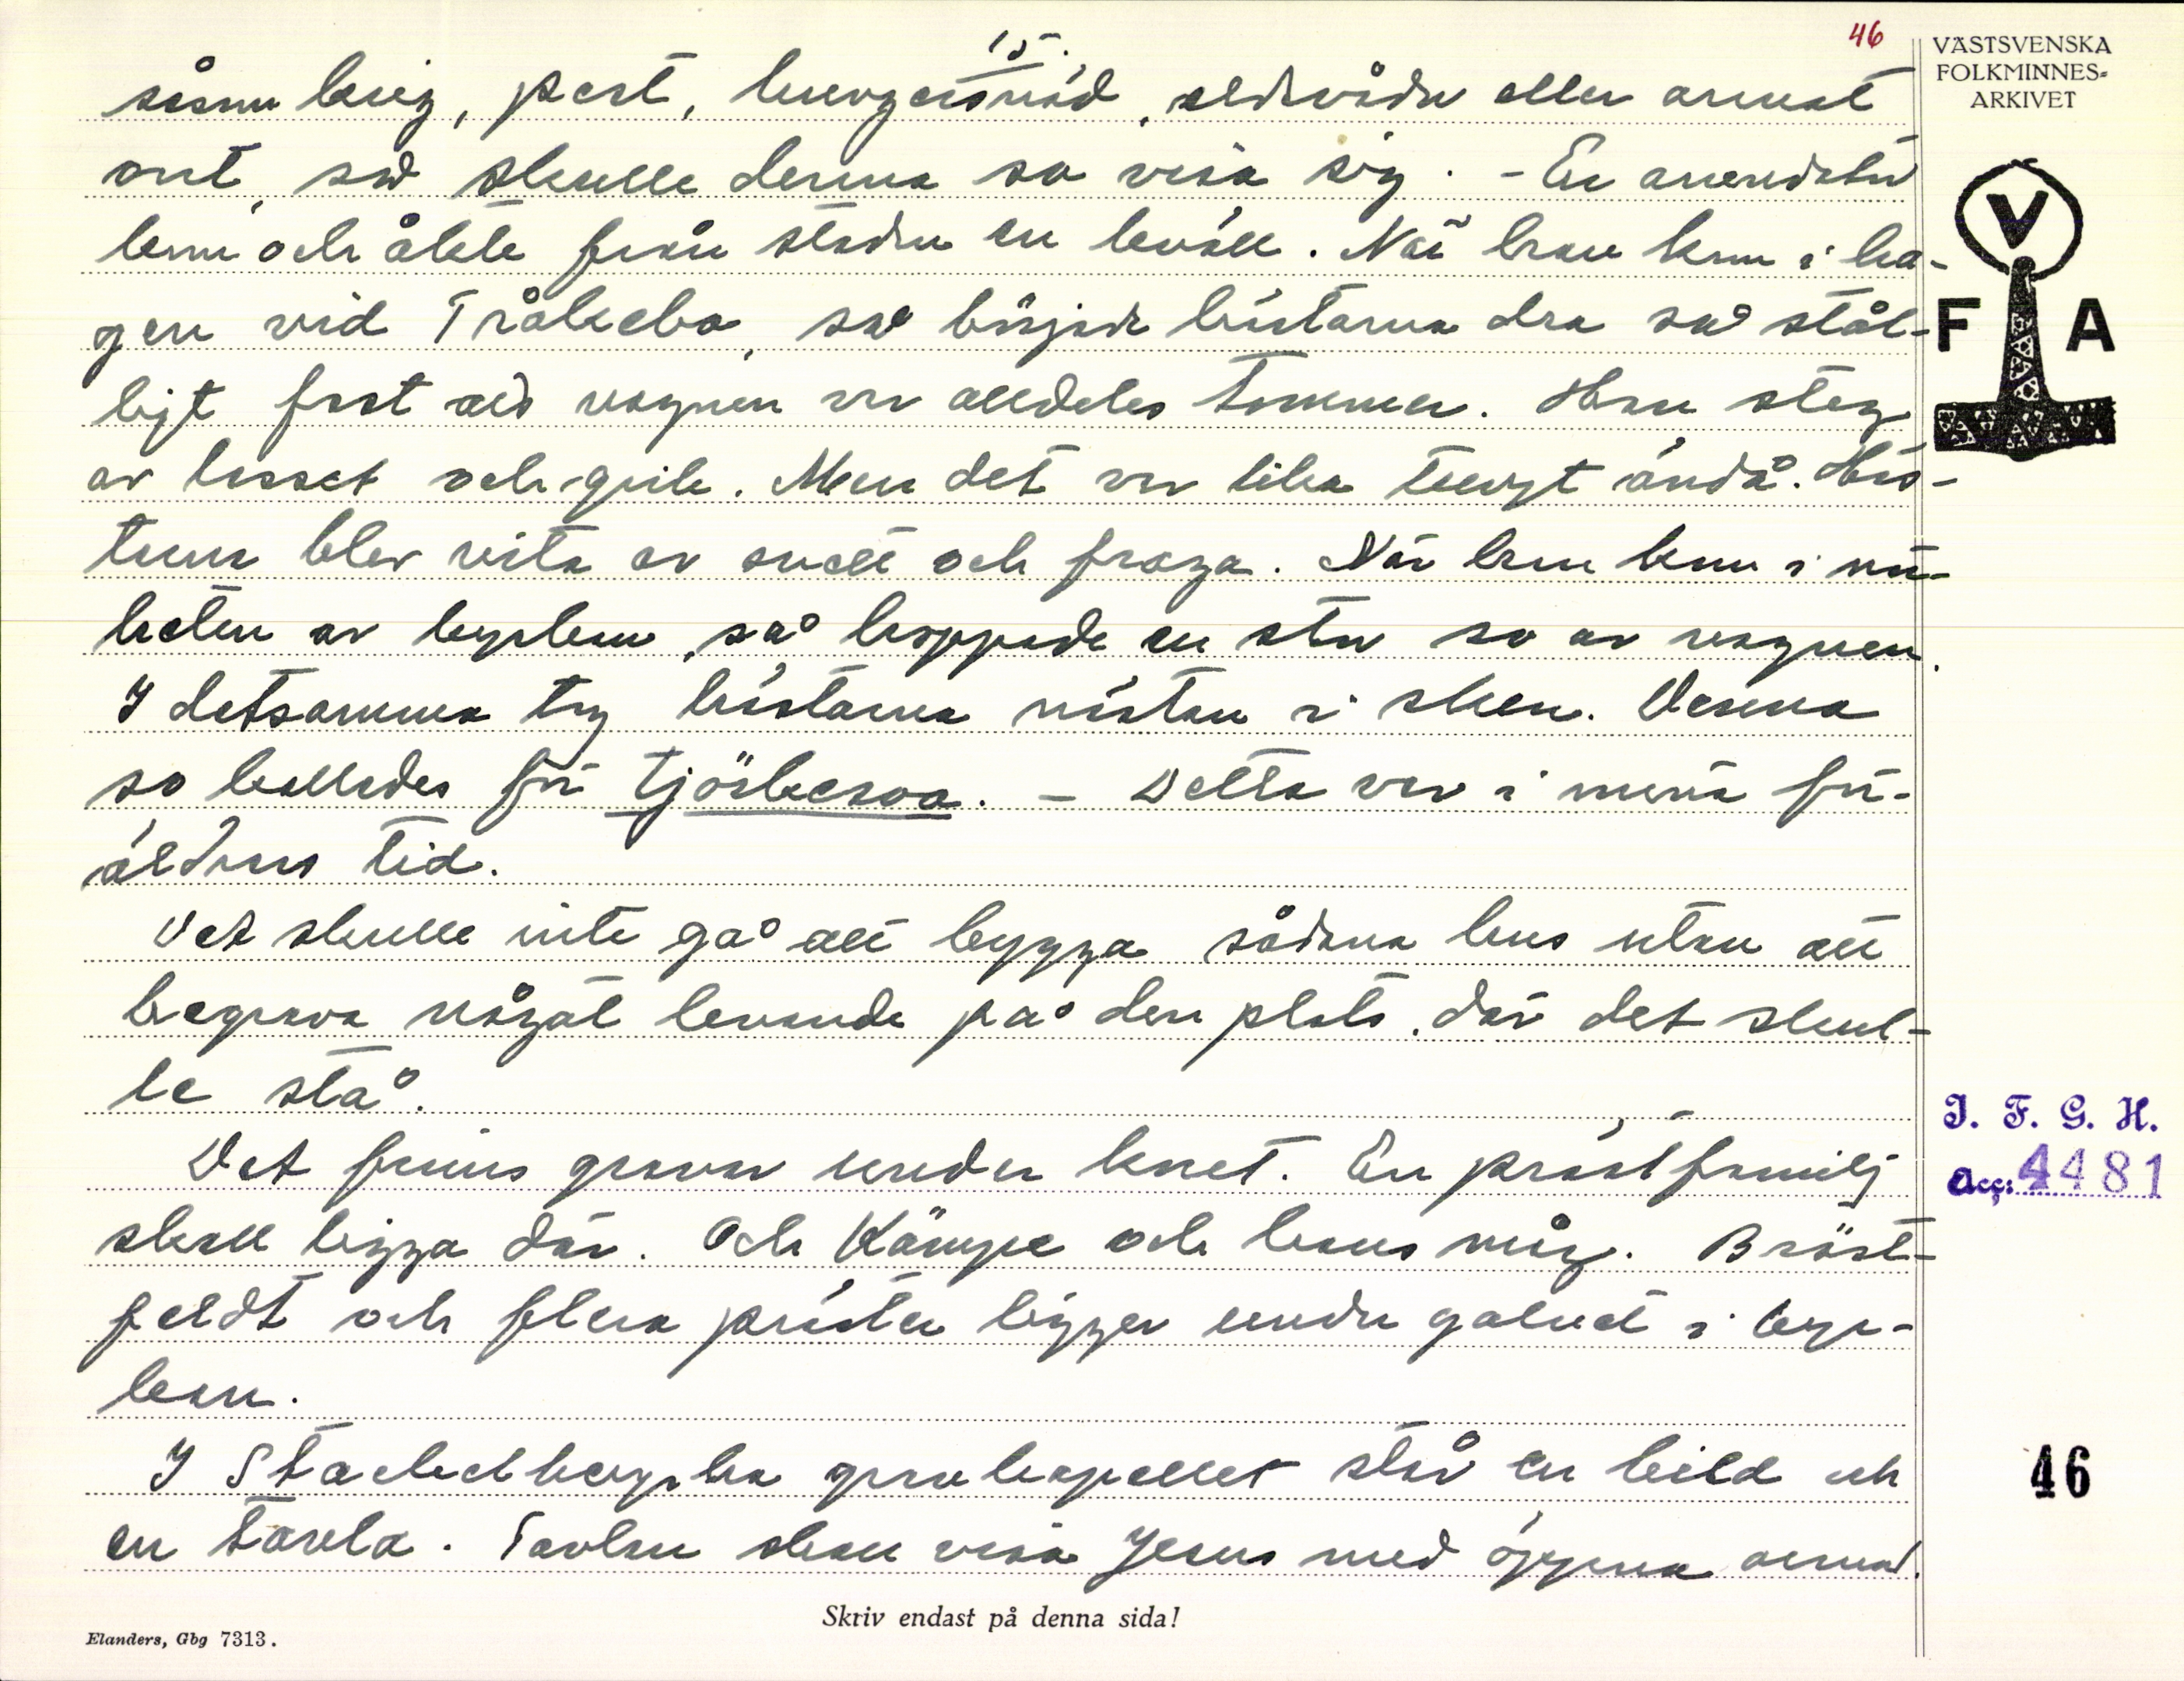 15.
46
såsom krig, pest, hungersnöd, eldsvåda eller annat
ont, så skulle denna so visa sig. - En arrendator
kom och åkte från staden en kväll. När han kom i ha-
gen vid Tråkebo, så började hästarna dra så stål-
ligt fast als vagnen var alldeles tommer. Han steg
av lasset och gick. Men det var lika tungt ändå. Häs-
tarna blev vita av svett och fraga. När han kom i nä-
heten av kyrkan, så hoppade en stor so av vagnen.
I detsamma tog hästarna nästan i sken. Denna
so kallades för tjörkesoa. - Detta var i mina för-
äldrars tid.
Det skulle inte gå att bygga sådana hus utan att
begrava något levande på den plats, där det skul-
le stå.
Det finns gravar under koret. En prästfamilj
skall ligga där. Och Kämpe och hans måg. Bröst-
feldt och flera präster ligger under golvet i kyr-
kan.
I Stackelbergska gravkapellet står en bild och
en tavla. Tavlan skall visa Jesus med öppna armar.
Skriv endast på denna sida!
Elanders, Gbg 7313.
VÄSTSVENSKA
FOLKMINNES-
ARKIVET
V
F A
I. F. G. H.
Acc: 4481
46